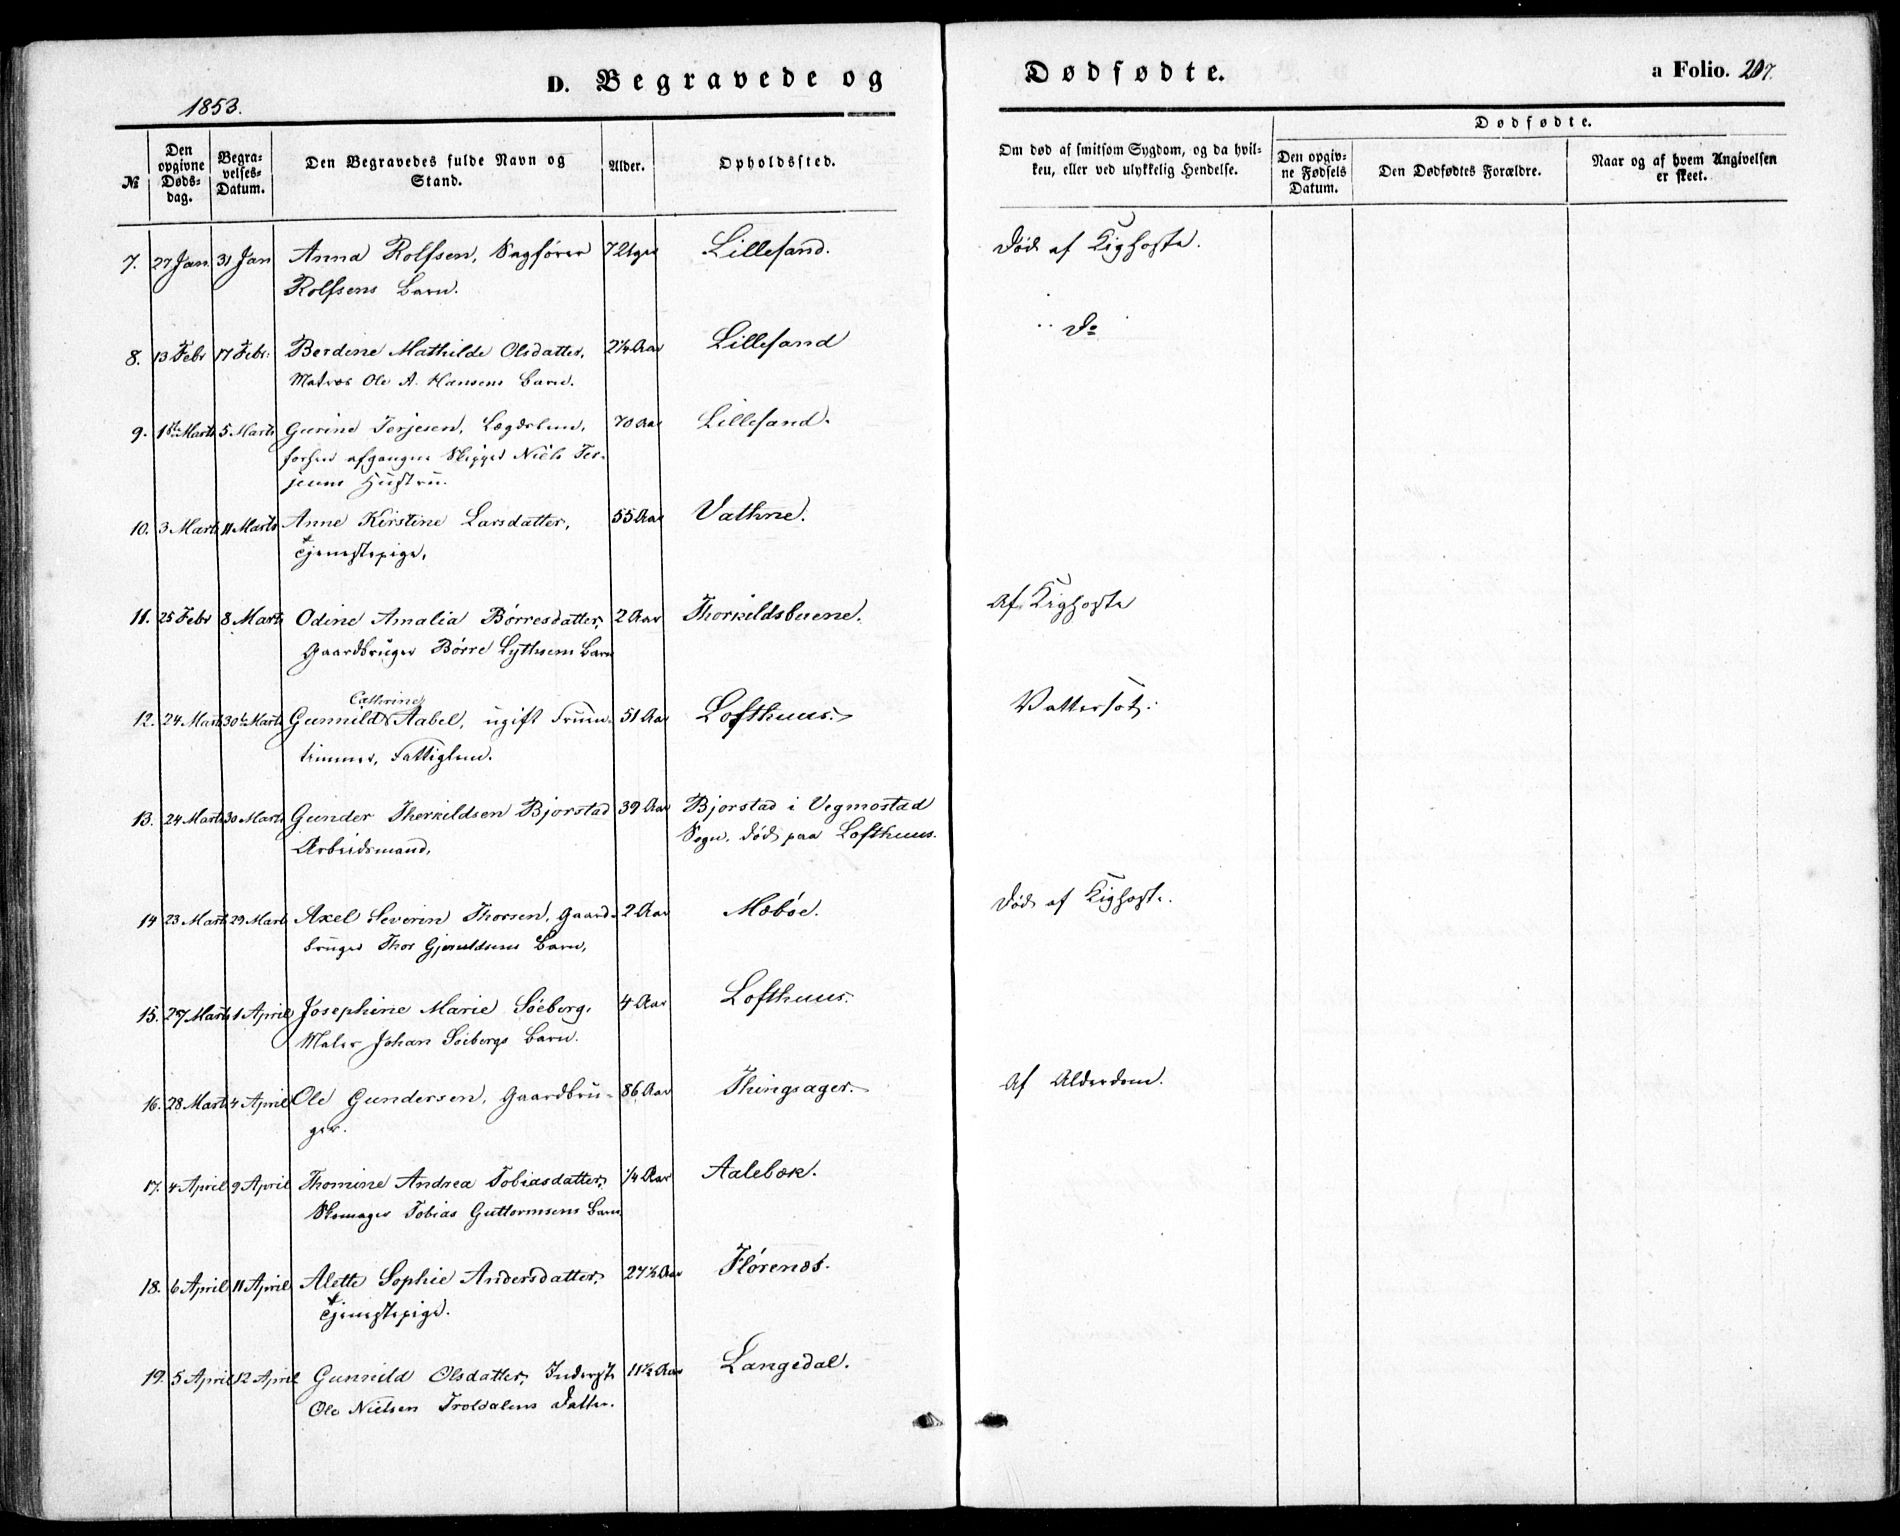 D. Begravede og Dødfødte. a Folio. 207.
1853.
Dødfødte.
№ Den opgivne Døds-dag. Begra-velses-Datum. Den Begravedes fulde Navn og Stand. Alder. Opholdssted. Om død af smitsom Sygdom, og da hvil-ken, eller ved ulykkelig Hendelse. Den opgiv-ne Fødsels Datum. Den Dødfødtes Forældre. Naar og af hvem Angivelsen er skeet.
7. 27 Jan. 31 Jan Anna Rolfsen, Sagfører 7 Uger Lillesand. Død af Kighoste.
Rolfsens Barn.
8. 13 Febr 17 Febr: Berdine Mathilde Olsdatter, 2¼ Aar Lillesand Do
Matros Ole A. Hansens Barn.
9. 1ste Marts 5 Marts Gurine Terjesen, Lægdslem, 70 Aar Lillesand.
forhen afgangne Skipper Niels Ter-
jesens Hustru.
10. 3 Marts 11 Marts Anne Kirstine Larsdatter, 55 Aar Vathne.
Tjenestepige,
11. 25 Febr 8 Marts Odine Amalia Børresdatter, 2 Aar Thorkildsbuene. Af Kighoste
Gaardbruger Børre Lythsens Barn
Cathrine
12. 24 Marts 30te Marts Gunnild Aabel, ugift Fruen- 51 Aar Lofthuus. Vattersot.
timmer, Fattiglem.
13. 24 Marts 30 Marts Gunder Therkildsen Bjorstad 39 Aar Bjorstad i Vegmostad
Arbeidsmand, Sogn, død paa Lofthuus.
14 23 Marts 29 Marts Axel Severin Thorsen, Gaard- 2 Aar Mæbøe. Død af Kighoste.
bruger Thor Gjeruldsens Barn,
15. 27 Marts 1 April Josephine Marie Söeberg, 4 Aar Lofthuus.
Maler Johan Söebergs Barn.
16. 28 Marts 4 April Ole Gundersen, Gaardbru- 86 Aar Thingsager. Af Alderdom.
ger.
17. 4 April 9 April Thomine Andrea Tobiasdatter, ¼ Aar Aalebæk.
Skomager Tobias Guttormsens Barn
18. 6 April 11 April Alette Sophie Andersdatter, 27½ Aar Flørenæs.
Tjenestepige.
19. 5 April 12 April Gunnild Olsdatter, Inderst 11½ Aar Langedal.
Ole Nielsen Troldalens Datter.